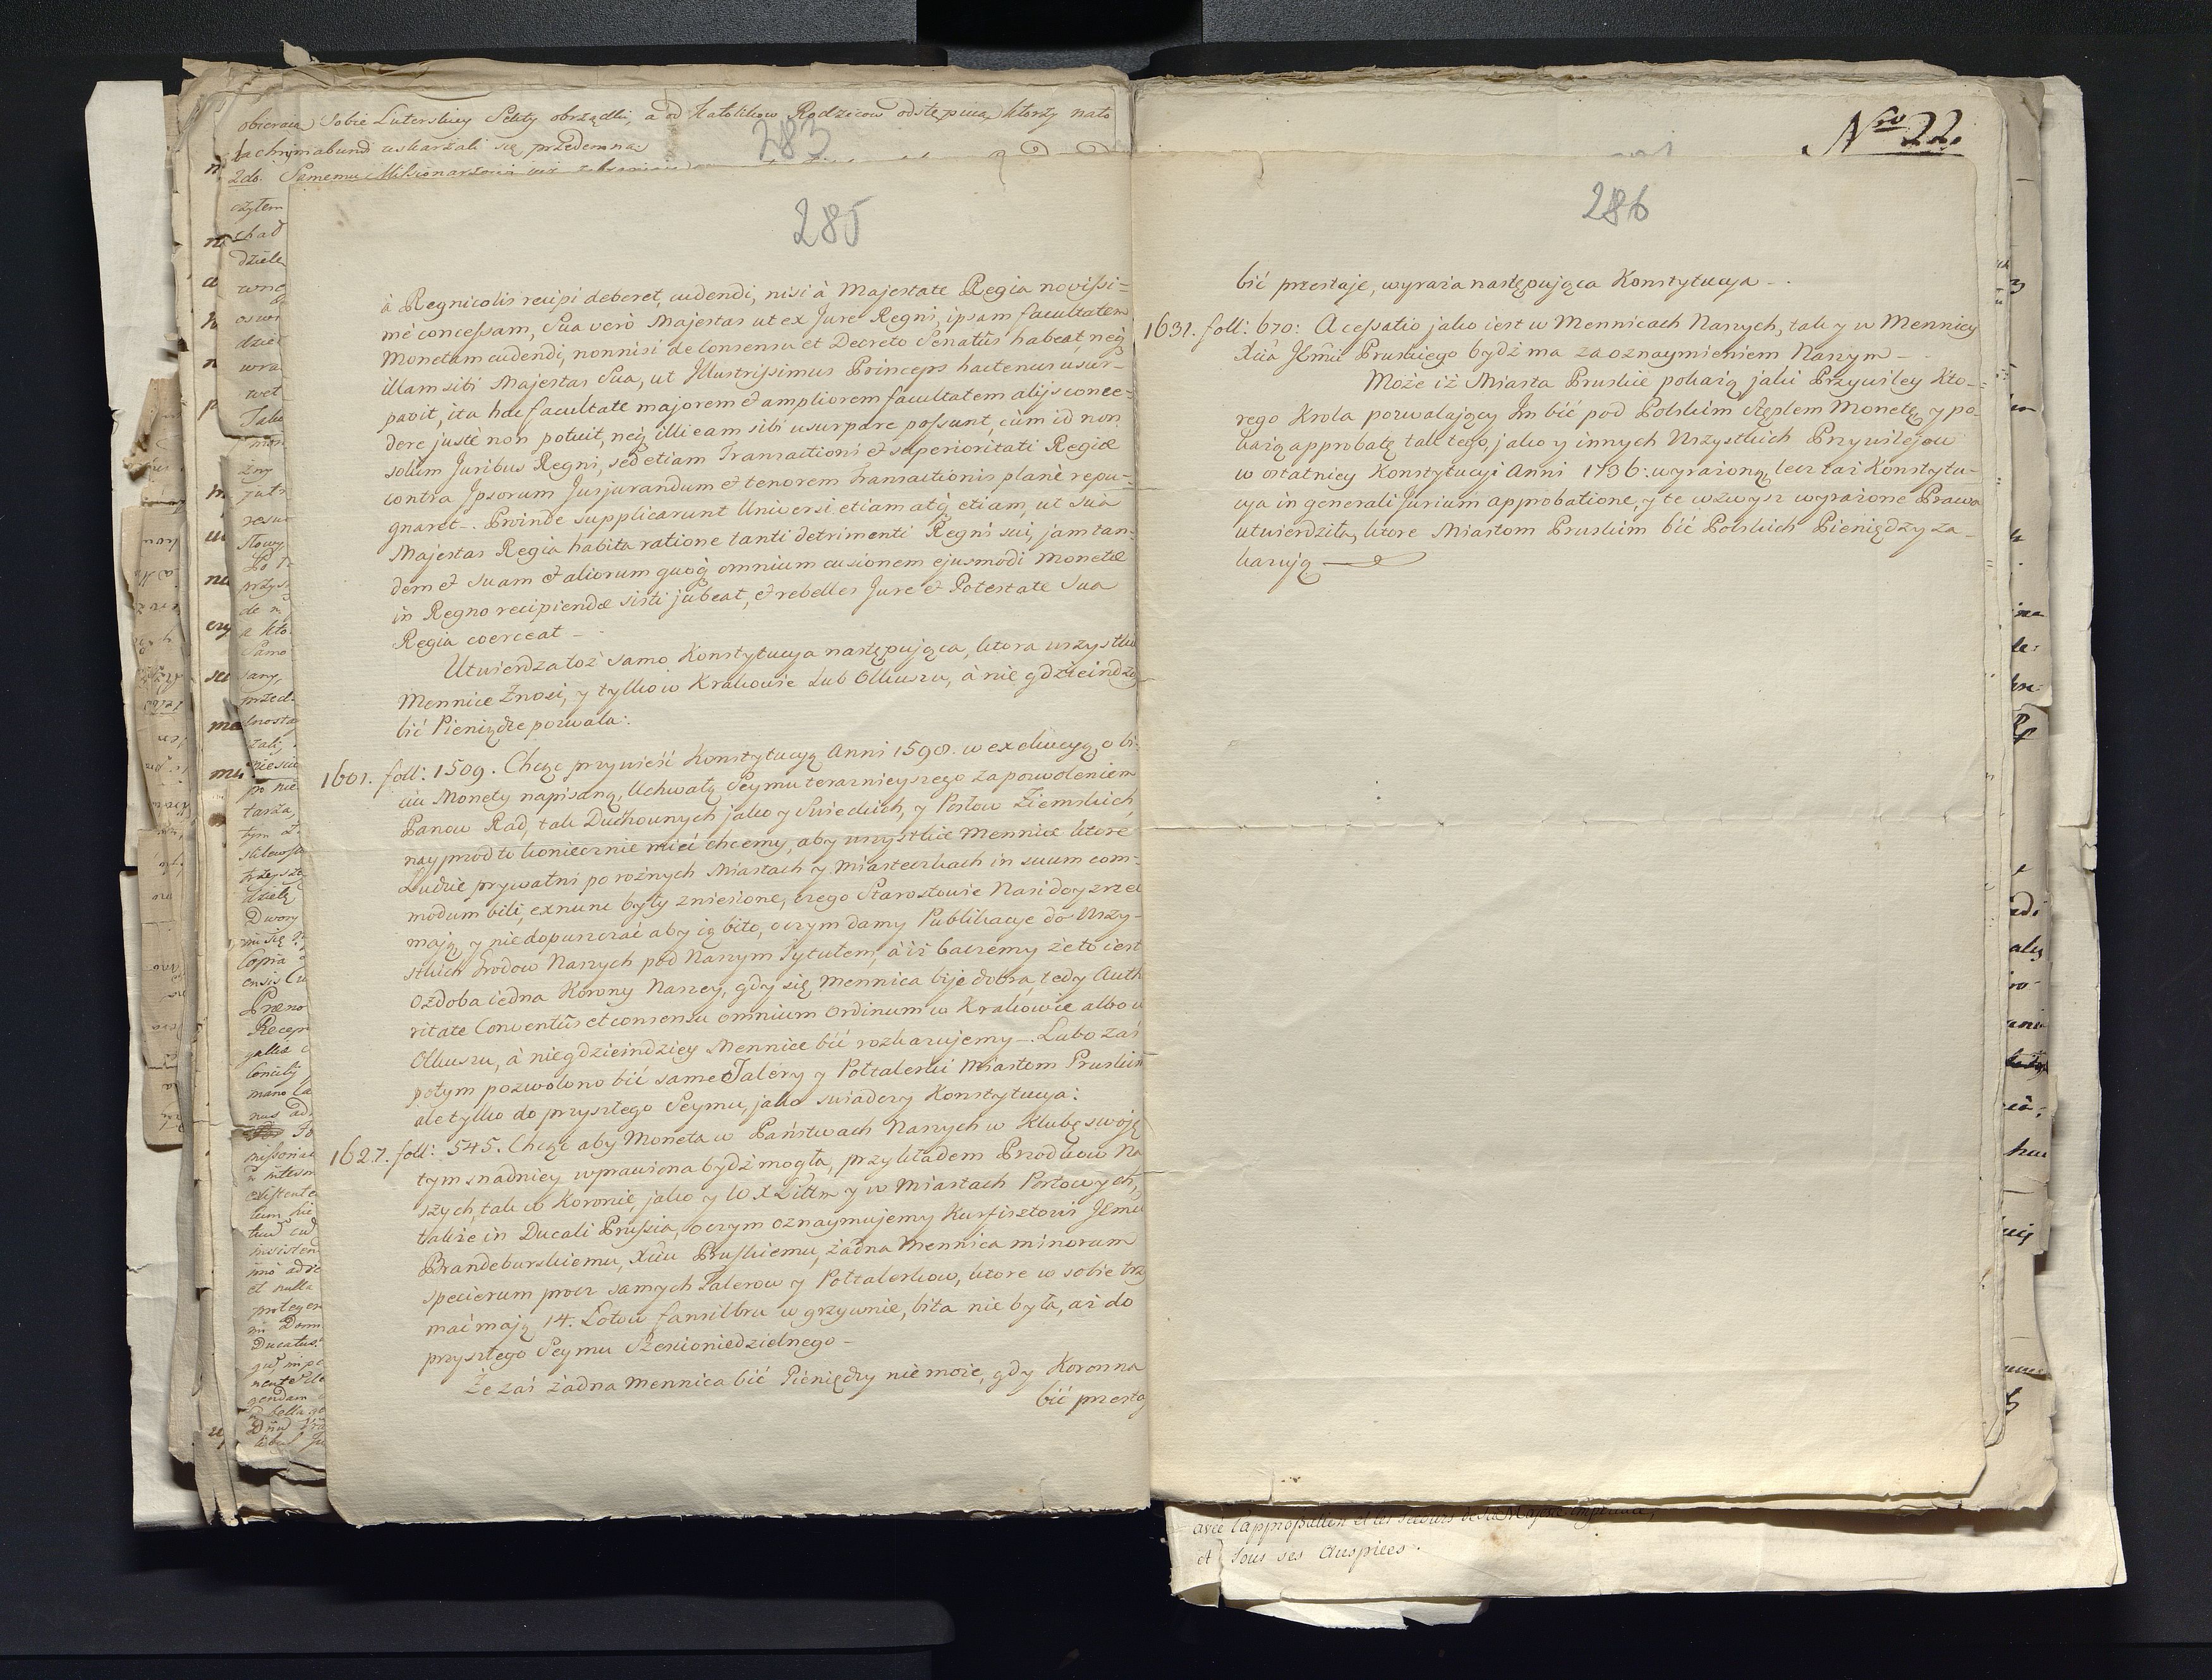 obieraią Sobie Luterskiey Sekty obrządki, a od Katolikow Rodzicow odstępuią, ktorzy na to
lachrymabundi uskarżali się przedemną
283
2do. Samemu Missionarzowi
285
à Regnicolis recipi deberet, cudendi, nisi à Majestate Regia novissi=
mè concessam, Sua verò Majestas ut ex Jure Regni, ipsam facultatem
Monetam cudendi, nonnisi de Consensu et Decreto Senatûs habeat, neq
illam sibi Majestas Sua, ut Illustrissimus Princeps hactenus usur=
pavit, ita hac facultate majorem et ampliorem facultatem alijs conce=
dere justè non potuit, neq illi eam sibi usurpare possunt, cùm id non
solùm Juribus Regni, sed etiam Transactioni et superioritati Regiæ
contra Ipsorum Jusjurandum et tenorem Transactionis planè repu=
gnaret. Proinde supplicarunt Universi etiam atq etiam, ut Sua
Majestas Regia habita ratione tanti detrimenti Regni sui, jam tan=
dem et suam et aliorum quoq omnium cusionem ejusmodi Monetæ
in Regno recipiendæ sisti jubeat, et rebelles Jure et Potestate Sua
Regia coerceat
Utwierdza toż samo Konstytucya następująca, ktora wszystkie
Mennice Znosi, y tylko w Krakowie lub Olkuszu, à nie gdzieindzey
bić Pieniądze pozwala:
1601. foll: 1509. Chcąc przywieść Konstytucyą Anni 1598. w exekucyą, o bi-
ciu Monety napisaną, Uchwałą Seymu terazniejszego za pozwoleniem
Panow Rad, tak Duchownych jako y Swieckich, y Posłow Ziemskich,
nayprzod to koniecznie mieć chcemy, aby wszystkie Mennice ktore
Ludzie prywatni po rożnych Miastach y Miasteczkach in suum com=
modum bili, ex nunc były zniesione, czego Starostowie Nasi doyzrzeć
mają, y niedopuszczać aby ią bito, o czym damy Publikacye do Wszy-
stkich Grodow Naszych pod Naszym Tytułem, à iż baczemy że to iest
Ozdoba iedna Korony Naszey, gdy się Mennica bije dobra, tedy Auth
ritate Conventûs et consensu omnium Ordinum w Krakowie albo w
Olkuszu, à nie gdzieindziey Mennice bić rozkazujemy. Lubo zaś
potym pozwolono bić same Talery y Połtalerki Miastom Pruskim
ale tylko do przyszłego Seymu, jako swiadczy Konstytucya:
1627. foll: 545. Chcąc aby Moneta w Państwach Naszych w Klubę swoję
tym snadniey wprawiona bydź mogła, przykładem Przodkow Na
szych, tak w Koronie, jako y W X Litt y w Miastach Portowych,
także in Ducali Prussia, o czym oznaymujemy Kurfisztowi Jemu
Brandeburskiemu, Xciu Pruskiemu, żadna Mennica minorum
specierum procz samych Talerow y Połtalerkow, ktore w sobie trzy
mać mają 14. Łotow fansilbru w grzywnie, bita nie była, aż do
przyszłego Seymu Sześcioniedzielnego
Że zaś żadna Mennica bić Pieniędzy nie może, gdy Koronna
bić przesta
Nro 22.
286
bić przestaje, wyraża następująca Konstytucya
1631. foll: 670: A cessatio jako iest w Mennicach Naszych, tak y w Mennicy
Xcia Jmci Pruskiego bydź ma za oznaymieniem Naszym
Może iż Miasta Pruskie pokażą jaki Przywiley Kto-
rego Krola pozwalający Im bić pod Polskim Stęplem Monetę, y po-
każą approbatę tak tego, jako y innych Wszystkich Przywilejow
w ostatniey Konstytucyi Anni 1736: wyrażoną, lecz taż Konstytu-
cya in generali Jurium approbatione, y te wzwysz wyrażone Prawa
utwierdziła, ktore Miastom Pruskim bić Polskich Pieniędzy za-
kazują
avec l'approbation et les secours de Sa Majesté Impériale,
et sous ses Auspices.